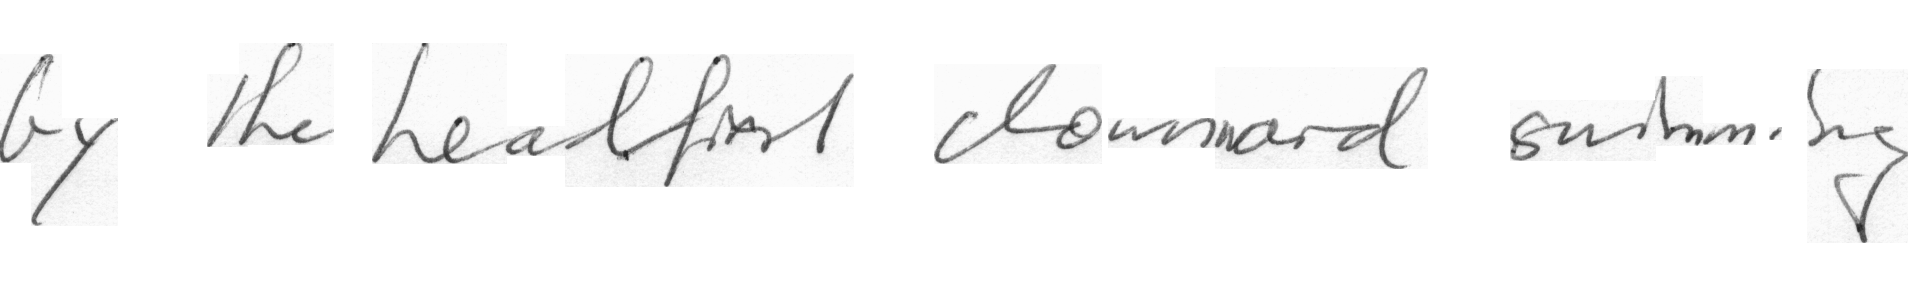 by the headfirst downward swimming